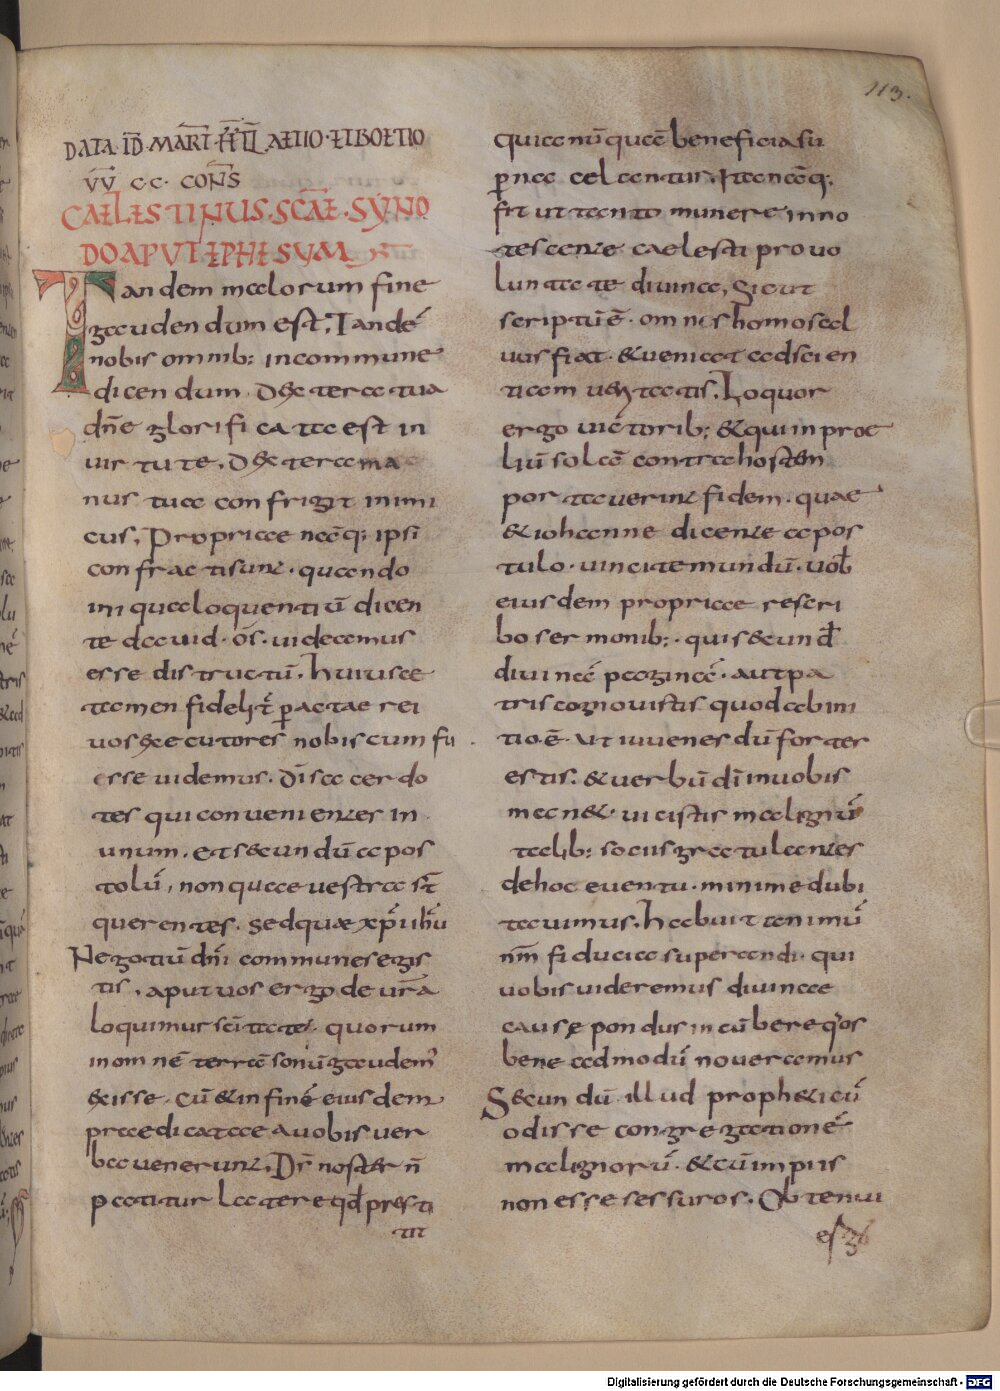 113.
DATA ID MARTI FL AETIO ET IBOETIO
VV C·C· CONS
CAELESTINUS·SCAE·SYNO
DO APUT EPHESUM
Tandem malorum fine
gaudendum est, Tandē
nobis omnib; incommune
dicendum dextera tua
dn̄e glorificata est in
uirtute. dextera ma
nus tua confrigit inimi
cus, Propriae nāq; ipsi
confracti sunt. quando
iniqua loquentiū dicen
te dauid. os. uidaamus
esse distructū. huiusce
tamen fideliṫ peractae rei
uos executores nobiscum fu
esse uidemus. dī sacerdo
tes qui conuenientes in
unum. et secundū apos
tolū, non quae uestra st̄
querentes. sed quae xp̄i ih̄u
Negotiū dn̄i communes egis
tis. aput uos ergo de ur̄a
loquimur sc̄itate quorum
in omnē terrā sonū gaudem'
exisse. cū et in finē eiusdem
praedicatae a uobis uer
ba uenerunt. Ds̄ noster n̄
patitur latere qd̄ presti
tit
quicunque beneficia su
perna celantur. Ita nāq;
fit ut tanto munere inno
tescente caelesti pro uo
luntate diuina, Sicut
scriptū ē. omnis homo sal
uus fiat. et ueniat ad scien
tiam ueritatis. Loquor
ergo uictorib; et qui in proe
liū solā contra hostem
portauerint fidem. quae
et iohanne dicente apos
tulo. uincit e mundū. uob̄
eiusdem propriae rescri
bo sermonib; quis secund̄
diuinā paginā. aut pa
tris cognouistis quod ab ini
tio ē. ut iuuenes dū forter
estis. et uerbū dī in uobis
manet. uicistis malignū
talib; sociis gratulantes
de hoc euentu. minime dubi
tauimus. habuit animū
nr̄m fiducia superandi. qui
uobis uideremus diuinae
cause pondus incūbere q°s
bene ad modū noueramus
Secundū illud prophaeticū
odisse congregationē
malignorū. et cū impiis
non esse sessuros. Obtenui